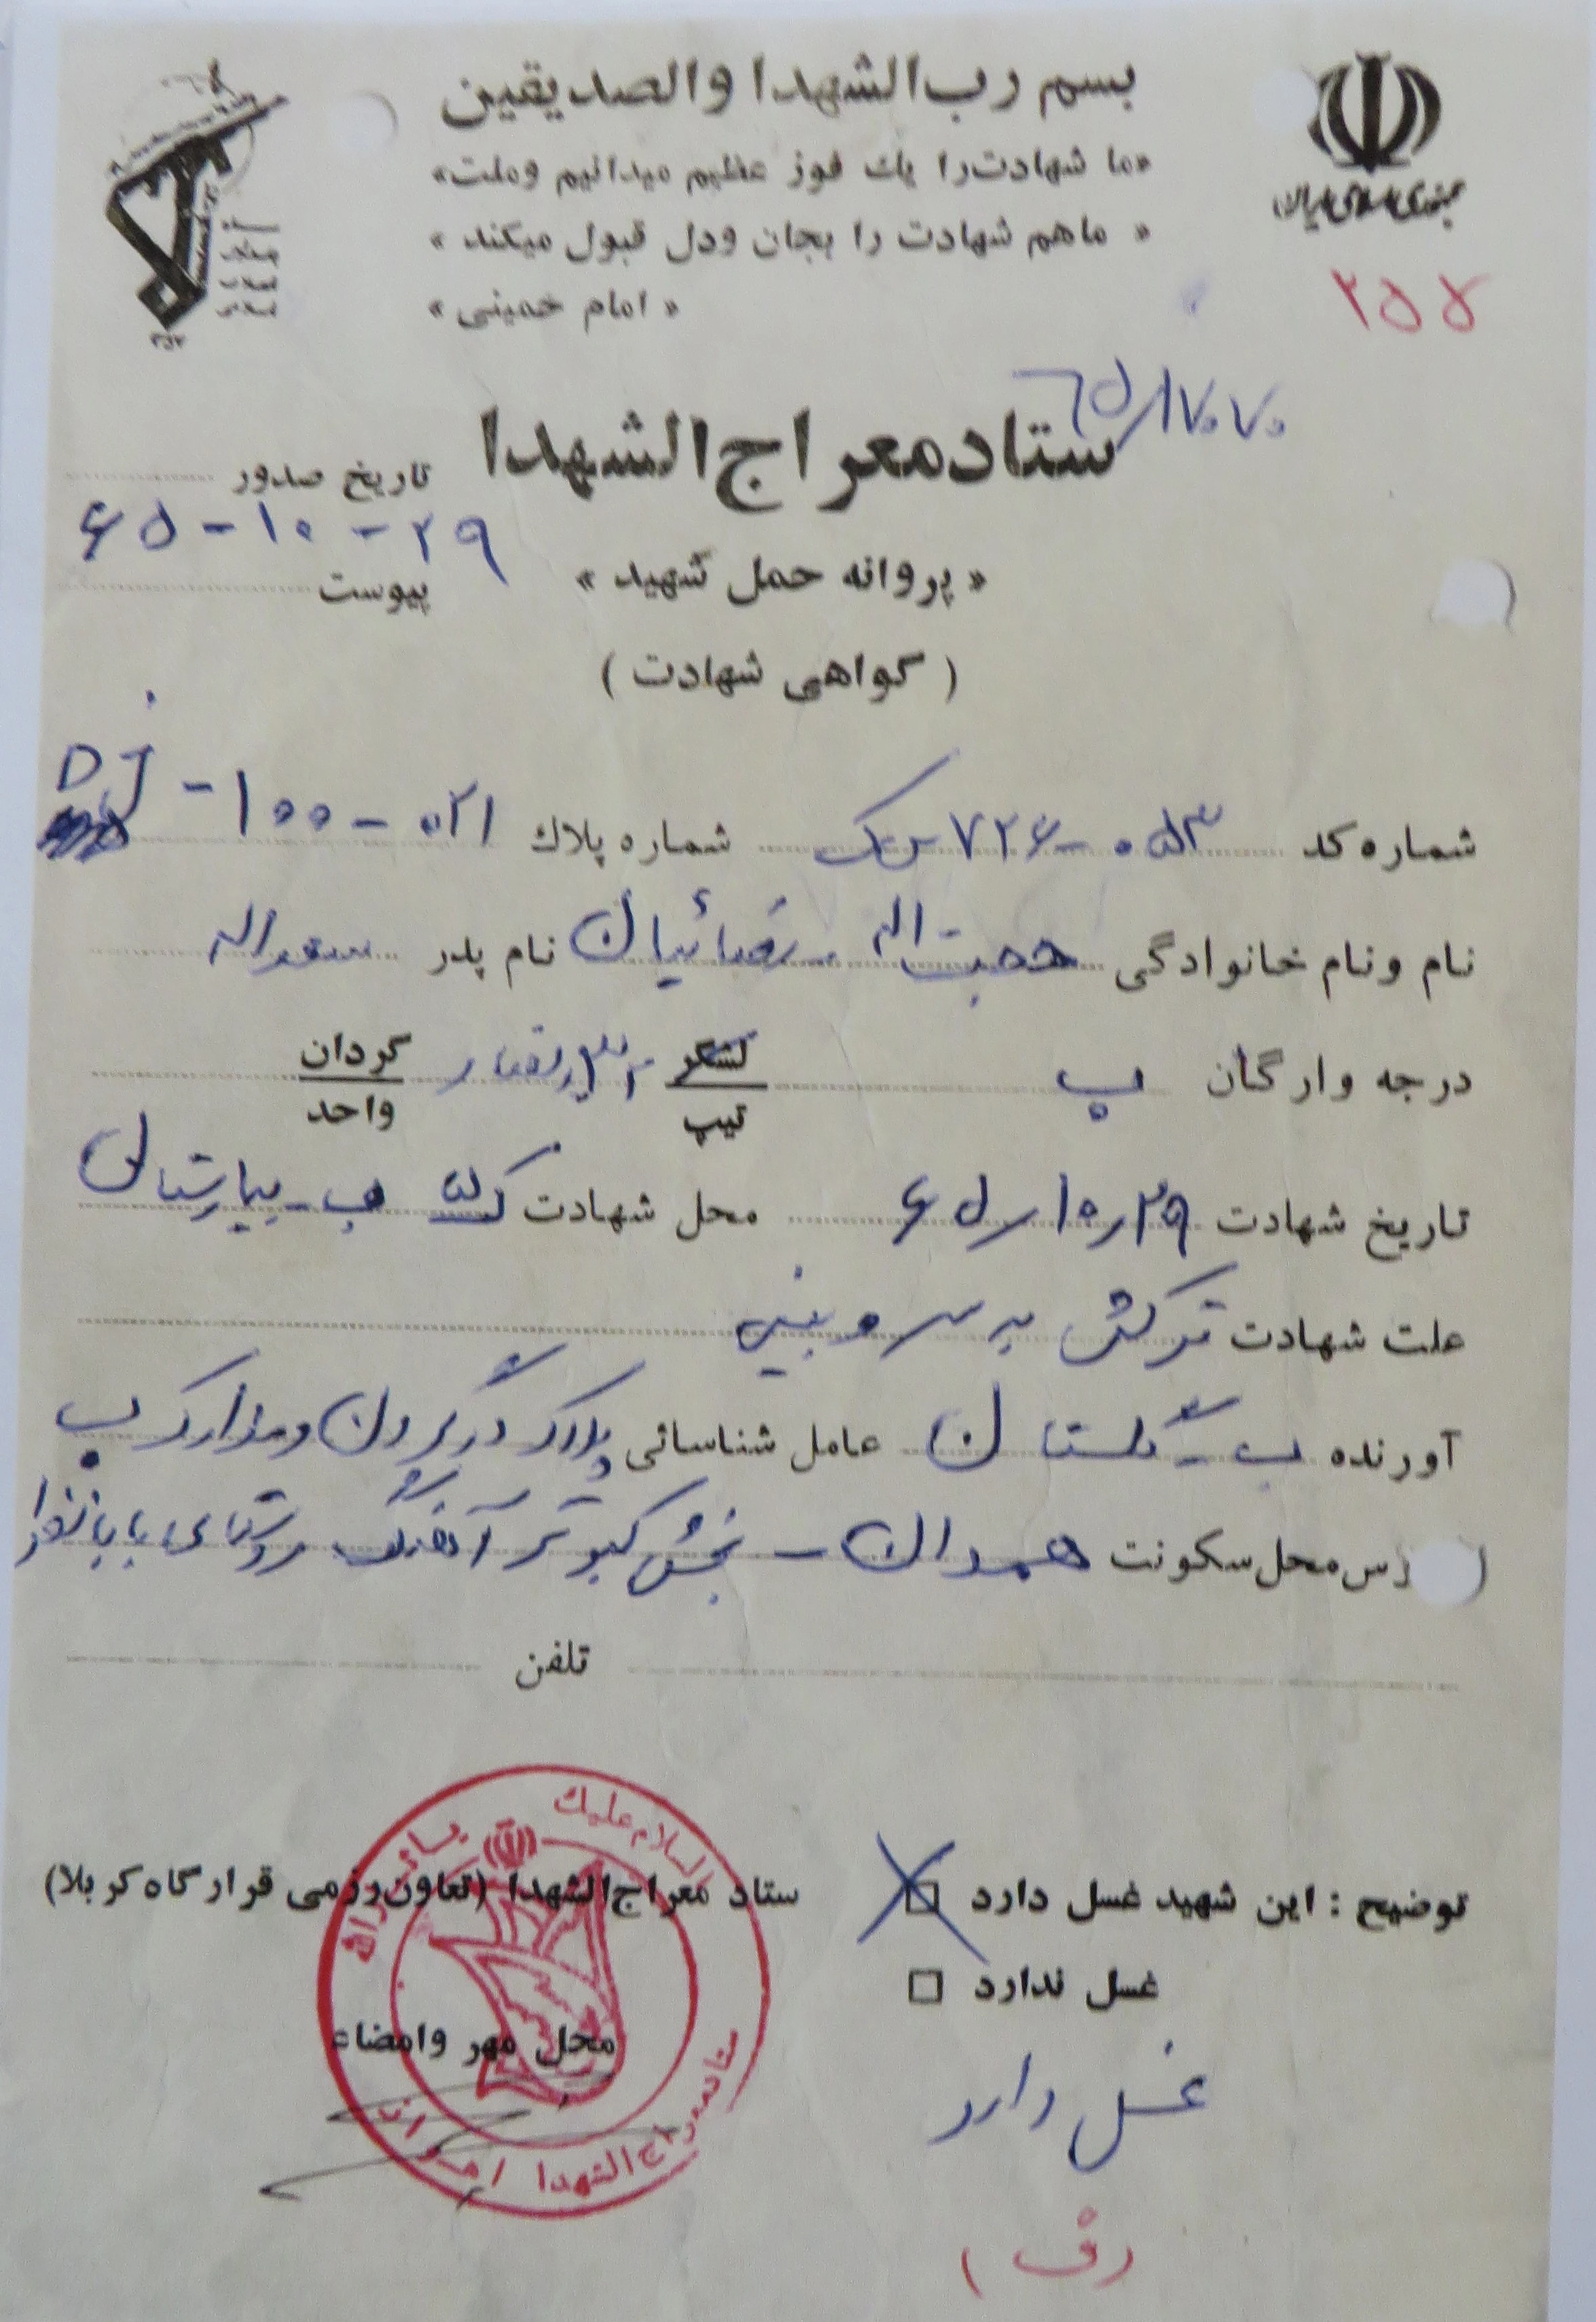 بسم رب الشهدا والصدیقین
«ما شهادت را یك فوز عظیم میدانیم وملت»
« ماهم شهادت را بجان ودل قبول میکند »
« امام خمینی »
جمهوری اسلامی ایران
۲۵۵
۶۵/۱۷۰۷۰
ستاد معراج الشهدا
تاریخ صدور
۶۵-۱۰-۲۹
« پروانه حمل شهید »
پیوست
( گواهی شهادت )
شماره کد ۰۵۳-۷۲۶ شماره پلاك ۰۲۱-۱۰۰-DJ
نام ونام خانوادگی حجت اله نام پدر سعداله
درجه وارگان ب لشگر ۳۲ انصار گردان
تیپ واحد
تاریخ شهادت ۶۵/۱۰/۲۹ محل شهادت ک ۵ ب-بیمارستان
علت شهادت ترکش به سر و بینی
آورنده ب - گلستان عامل شناسائی پلاک در گردن و مدارک ب
رس محل سکونت همدان - بخش کبوتر آهنگ روستای بابانظر
تلفن
توضیح : این شهید غسل دارد □ ستاد معراج الشهدا (تعاون رزمی قرارگاه کربلا)
غسل ندارد □
محل مهر وامضاء
غسل دارد
السلام علیك
ستاد معراج الشهدا اهواز